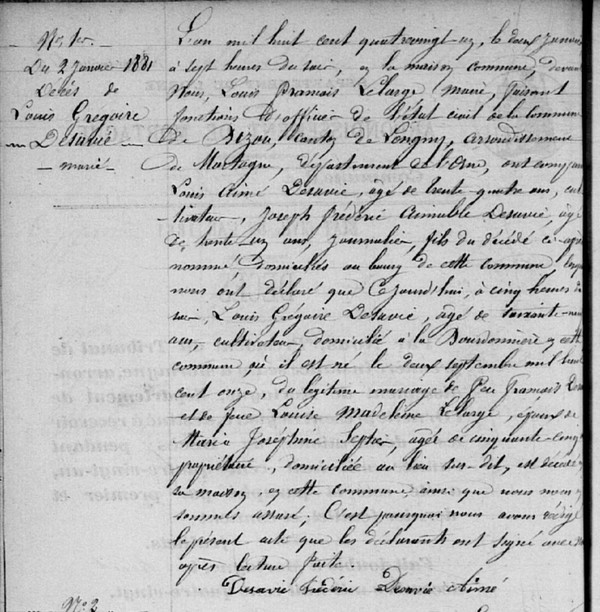 No 1er.
Du 2 Janvier 1881
Décès de
Louis Grégoire
Desavie
marié
L'an mil huit cent quatrevingt un, le deux Janvier
à sept heures du soir, en la maison commune, devant
Nous, Louis François Lelarge, Maire, faisant
fonctions d'officier de l'état civil de la commune
de Bizou, canton de Longny, arrondissement
de Mortagne, département de l'Orne, ont comparu
Louis Aimé Desavie, agé de trente quatre ans, cul
tivateur, Joseph Frédéric Aimable Desavie agé
de trente un ans, journalier, fils du décédé ci-après
nommé domiciliés au bourg de cette commune, lesquels
nous ont déclaré que Cejourd'hui, à cinq heures du
soir, Louis Grégoire Desavie, agé de soixante-neuf
ans, cultivateur, domicilié à la Bourdonnière en cette
commune où il est né le deux septembre mil huit
cent onze, du légitime mariage de feu François
et de feue Louise Madeleine Lelarge, époux de
Maria Joséphine agée de cinquante-cinq
propriétaire, domiciliée au lieu sus-dit, est décédé
sa maison, en cette commune ainsi que nous nous
sommes assuré; C'est pourquoi nous avons rédigé
le présent acte que les déclarants ont signé avec
après lecture faite
Desavie Frédéric Desavie Aimé
No 2